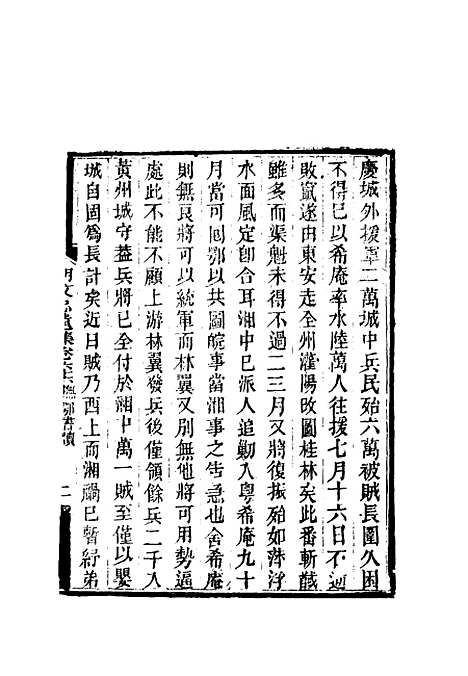 慶城外援軍二萬城中兵民殆六萬被賊長圍久困
不得已以希庵率水陸萬人往援七月十六日不逦
敗竄遂由東安走全州灌陽攻圖桂林矣此番斬馘
雖多而渠魁未得不過二三月又將復振殆如萍浮
水面風定卽合耳湘中已派人追勦入粵希庵九十
月當可囘鄂以共圖皖事當湘事之告急也舍希庵
則無良將可以統軍而林翼又別無他將可用勢逼
處此不能不顧上游林翼發兵後僅領餘兵二千入
黃州城守益兵將已全付於湘中萬一賊至僅以嬰
城自固爲長計矣近日賊乃酉上而湘禍已暫紓弟
胡文忠公遺集卷六十 撫鄂書牘 二